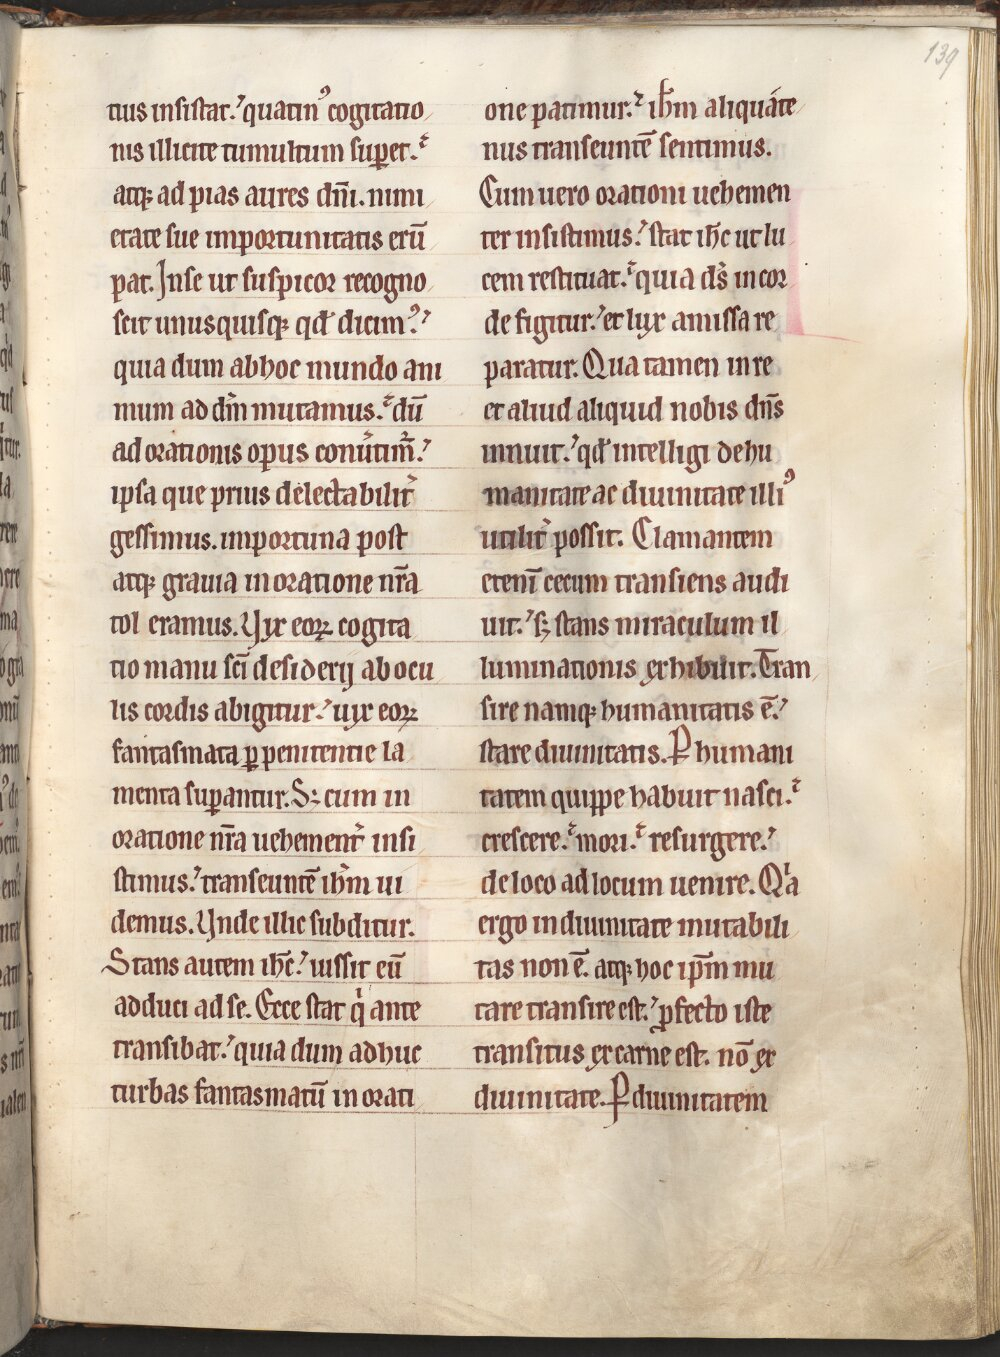 139
tius insistat. quatin᷒ cogitatio
nis illicite tumultum sup̲et.
atq; ad pias aures dn̄i. nimi
etate sue importunitatis erū
pat. Inse ut suspicor recogno
scit unusquisq; qđ dicim᷒.
quia dum abhoc mundo ani
mum ad dm̄ mutamus. dū
ad orationis opus conūtim̄.
ipsa que prius delectabilit᷑
gessimus. importuna post
atq; grauia in oratione nr̄a
tol eramus. Vix eoꝝ cogita
tio manu sc̄i desiderij ab ocu
lis cordis abigitur. uix eoꝝ
fantasmata ꝑ penitentie la
menta suꝑantur. S; cum in
oratione nr̄a uehement᷑ insi
stimus. transeuntē ih̄m ui
demus. Vnde illic subditur.
Stans autem ih̄c. iussit eū
adduci ad se. Ecce stat qͥ ante
transibat. quia dum adhuc
turbas fantasmatū in orati
one patimur. ih̄m aliquáte
nus transeuntē sentimus.
Cum uero orationi uehemen
ter insistimus. stat ih̄c ut lu
cem restituat. quia ds̄ in cor
de figitur. et lux amissa re
paratur. Qua tamen in re
et aliud aliquid nobis dn̄s
innuit. qđ intelligi de hu
manitate ac diuinitate illi᷒
utilit᷑ possit. Clamantem
etenī cecum transiens audi
uit. s; stans miraculum il
luminationis exhibuit. Tran
sire namq; humanitatis ē.
stare diuinitatis. P̲ humani
tatem quippe habuit nasci.
crescere. mori. resurgere.
de loco ad locum uenire. Qͥa
ergo in diuinitate mutabili
tas non ē. atq; hoc ip̄m mu
tare transire est. ꝓfecto iste
transitus ex carne est. nō ex
diuinitate. P̲ diuinitatem